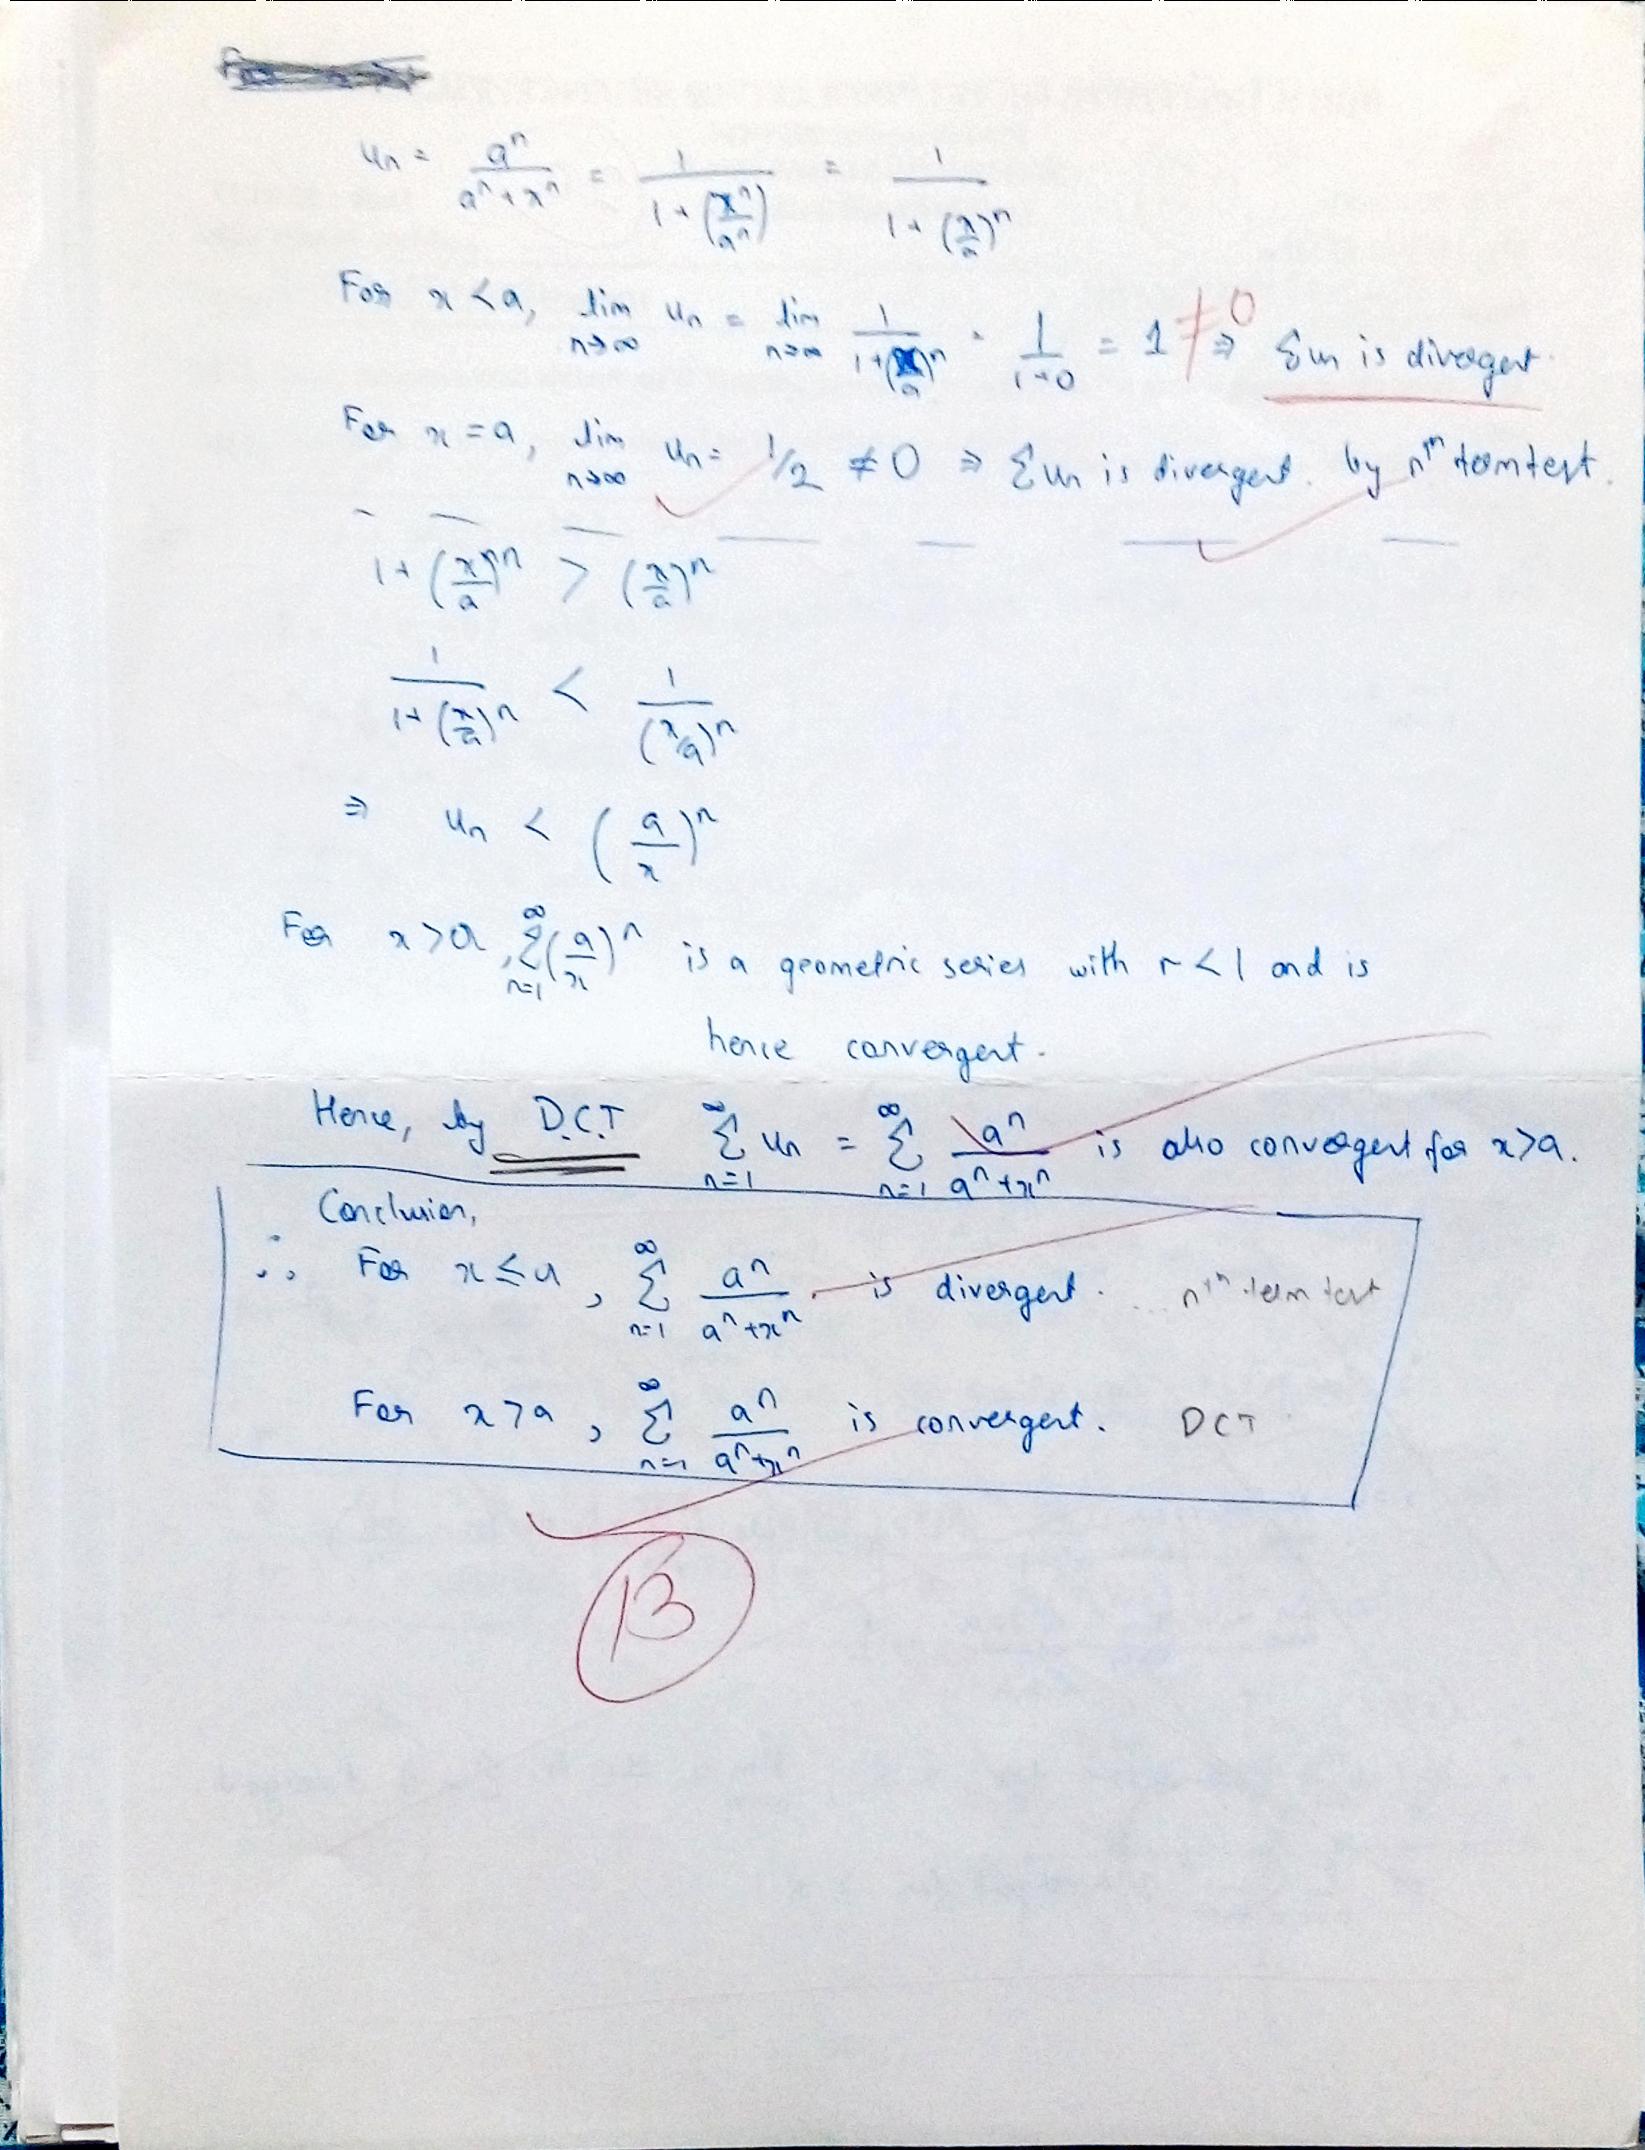 uₙ = aⁿ/(aⁿ+xⁿ) = 1/(1+(xⁿ/aⁿ)) = 1/(1+(x/a)ⁿ)
For x < a, lim n→∞ uₙ = lim n→∞ 1/(1+(x/a)ⁿ) = 1/(1+0) = 1 ≠ 0 ⇒ Σuₙ is divergent.
For x = a, lim n→∞ uₙ = 1/2 ≠ 0 ⇒ Σuₙ is divergent. by nᵗʰ term test.
1+(x/a)ⁿ > (x/a)ⁿ
1/(1+(x/a)ⁿ) < 1/(x/a)ⁿ
⇒ uₙ < (a/x)ⁿ
For x > a, ∞Σn=1 (a/x)ⁿ is a geometric series with r < 1 and is
hence convergent.
Hence, by D.C.T ∞Σn=1 uₙ = ∞Σn=1 aⁿ/(aⁿ+xⁿ) is also convergent for x>a.
Conclusion,
∴ For x ≤ a, ∞Σn=1 aⁿ/(aⁿ+xⁿ) is divergent. ... nᵗʰ term test
For x > a, ∞Σn=1 aⁿ/(aⁿ+xⁿ) is convergent. DCT
13